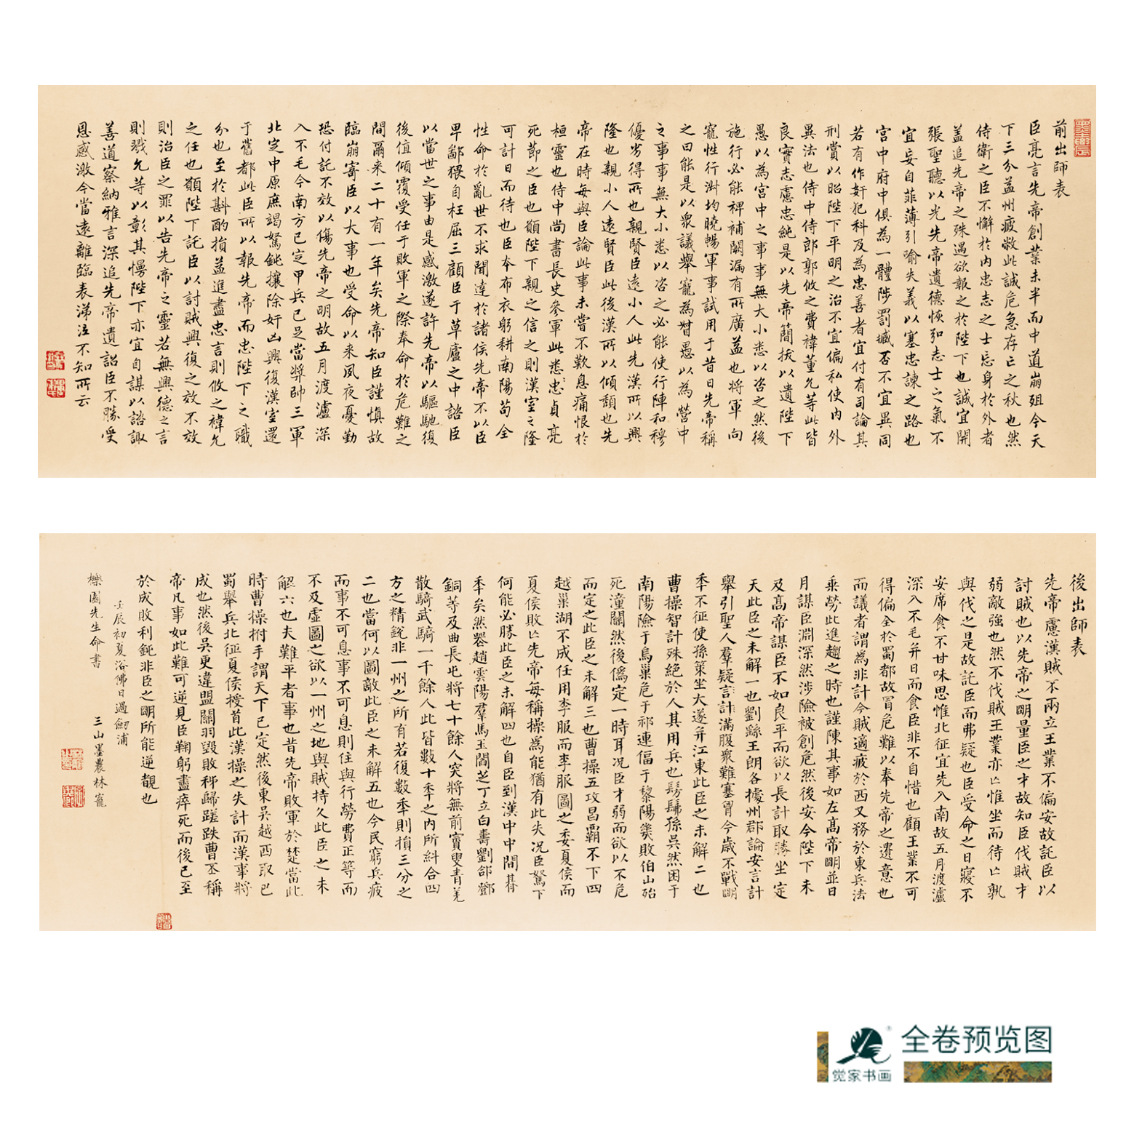 前出師表
臣亮言先帝創業未半而中道崩殂今天
下三分益州疲敝此誠危急存亡之秋也然
侍衛之臣不懈於内忠志之士忘身於外者
蓋追先帝之殊遇欲報之於陛下也誠宜開
張聖聽以光先帝遺德恢弘志士之氣不
宜妄自菲薄引喻失義以塞忠諫之路也
宮中府中俱為一體陟罰臧否不宜異同
若有作奸犯科及為忠善者宜付有司論其
刑賞以昭陛下平明之治不宜偏私使内外
異法也侍中侍郎郭攸之費禕董允等此皆
良實志慮忠純是以先帝簡拔以遺陛下
愚以為宮中之事事無大小悉以咨之然後
施行必能裨補闕漏有所廣益也將軍向
寵性行淑均曉暢軍事試用于昔日先帝稱
之曰能是以衆議舉寵為督愚以為營中
之事事無大小悉以咨之必能使行陣和穆
優劣得所也親賢臣遠小人此先漢所以興
隆也親小人遠賢臣此後漢所以傾頹也先
帝在時每與臣論此事未嘗不歎息痛恨於
桓靈也侍中尚書長史參軍此悉忠貞亮
死節之臣也願陛下親之信之則漢室之隆
可計日而待也臣本布衣躬耕南陽苟全
性命於亂世不求聞達於諸侯先帝不以臣
卑鄙猥自枉屈三顧臣于草廬之中諮臣
以當世之事由是感激遂許先帝以驅馳後
後值傾覆受任于敗軍之際奉命於危難之
間爾來二十有一年矣先帝知臣謹慎故
臨崩寄臣以大事也受命以來夙夜憂勤
恐付託不效以傷先帝之明故五月渡瀘深
入不毛今南方已定甲兵已足當獎帥三軍
北定中原庶竭駑鈍攘除奸凶興復漢室還
于舊都此臣所以報先帝而忠陛下之職
分也至於斟酌損益進盡忠言則攸之禕允
之任也願陛下託臣以討賊興復之效不效
則治臣之罪以告先帝之靈若無興德之言
則戮允等以彰其慢陛下亦宜自謀以諮諏
善道察納雅言深追先帝遺詔臣不勝受
恩感激今當遠離臨表涕泣不知所云
後出師表
先帝慮漢賊不兩立王業不偏安故託臣以
討賊也以先帝之明量臣之才故知臣伐賊才
弱敵強也然不伐賊王業亦亡惟坐而待亡孰
與伐之是故託臣而弗疑也臣受命之日寢不
安席食不甘味思惟北征宜先入南故五月渡瀘
深入不毛并日而食臣非不自惜也顧王業不可
得偏全於蜀都故冒危難以奉先帝之遺意也
而議者謂為非計今賊適疲於西又務於東兵法
乘勞此進趨之時也謹陳其事如左高帝明並日
月謀臣淵深然涉險被創危然後安今陛下未
及高帝謀臣不如良平而欲以長計取勝坐定
天此臣之未解一也劉繇王朗各據州郡論安言計
舉引聖人羣疑滿腹衆難塞胸今歲不戰明
年不征使孫策坐大遂并江東此臣之未解二也
曹操智計殊絕於人其用兵也髣髴孫吳然困于
南陽險于烏巢危于祁連偪于黎陽幾敗伯山殆
死潼關然後僞定一時耳况臣才弱而欲以不危
而定之此臣之未解三也曹操五攻昌霸不下四
越巢湖不成任用李服而李服圖之委夏侯而
夏侯敗亡先帝每稱操爲能猶有此失况臣駑下
何能必勝此臣之未解四也自臣到漢中中間朞
年矣然喪趙雲陽羣馬玉閻芝丁立白壽劉郃鄧
銅等及曲長屯將七十餘人突將無前賨叟青羌
散騎武騎一千餘人此皆數十年之内所糾合四
方之精銳非一州之所有若復數年則損三分之
二也當何以圖敵此臣之未解五也今民窮兵疲
而事不可息事不可息則住與行勞費正等而
不及虛圖之欲以一州之地與賊持久此臣之未
解六也夫難平者事也昔先帝敗軍於楚當此
時曹操拊手謂天下已定然後東吳越西取巴
蜀舉兵北征夏侯授首此漢操之失計而漢事將
成也然後吳更違盟關羽毀敗秭歸蹉跌曹丕稱
帝凡事如此難可逆見臣鞠躬盡瘁死而後已至
於成敗利鈍非臣之明所能逆覩也
壬辰初夏浴佛日過劍浦
櫟園先生命書
三山墨農林寵
全卷预览图
觉家书画